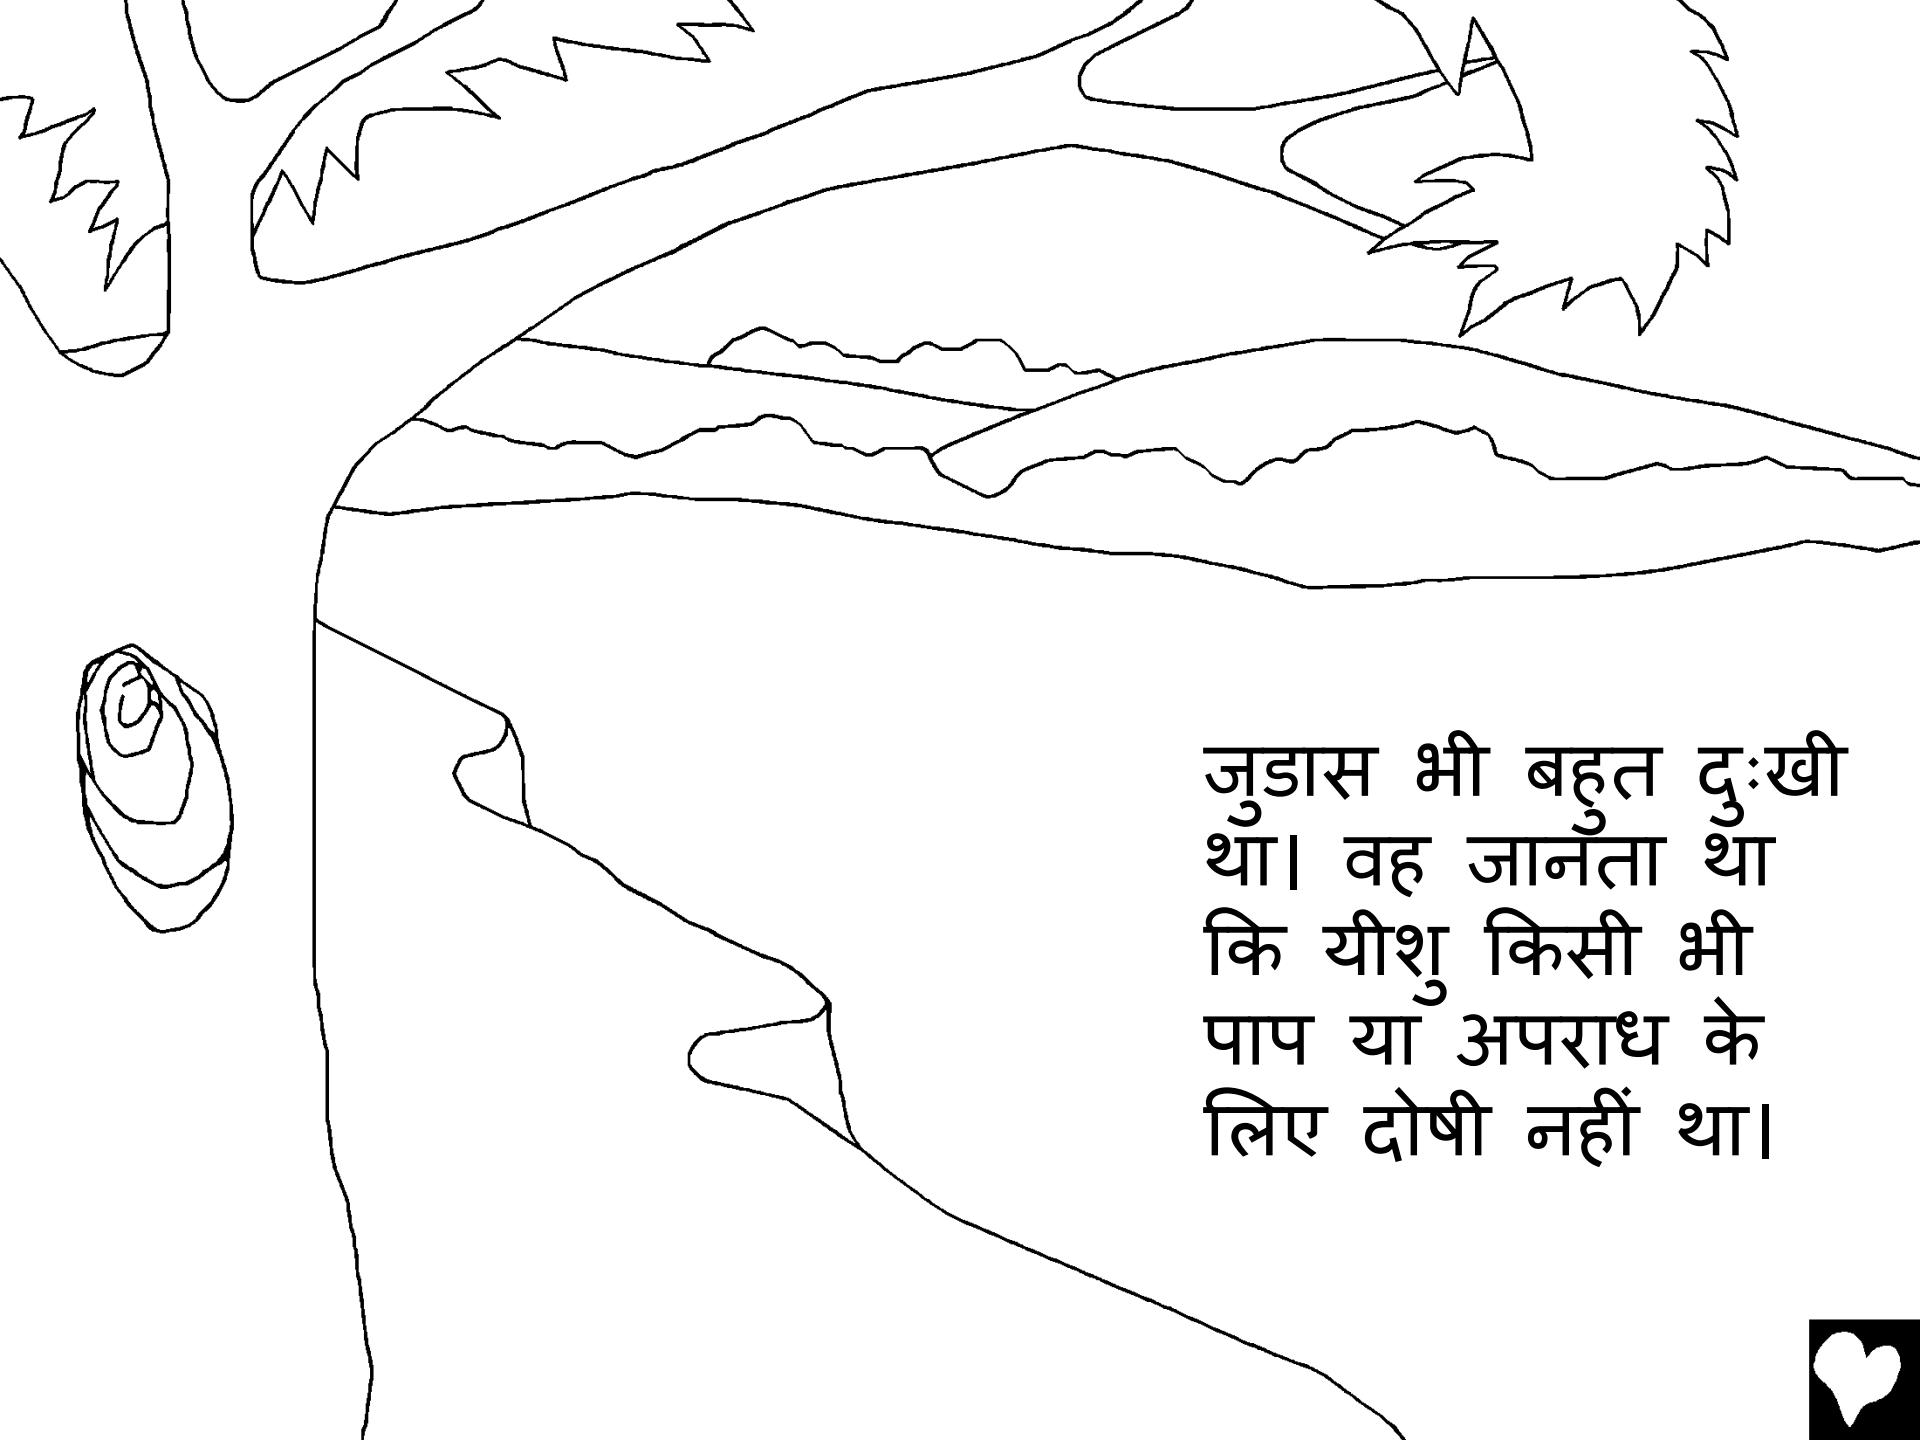 जुडास भी बहुत दुःखी
था। वह जानता था
कि यीशु किसी भी
पाप या अपराध के
लिए दोषी नहीं था।